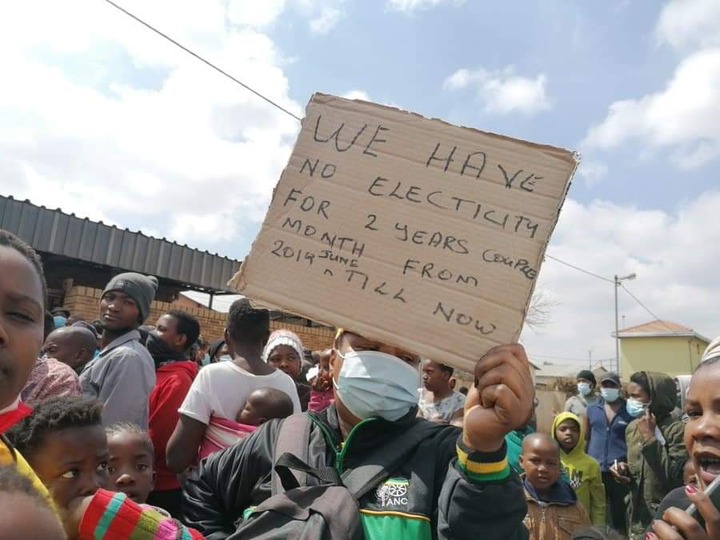 WE HAVE
NO ELECTICITY
FOR 2 YEARS COUPLE
MONTH FROM
2019 JUNE TILL NOW
ANC